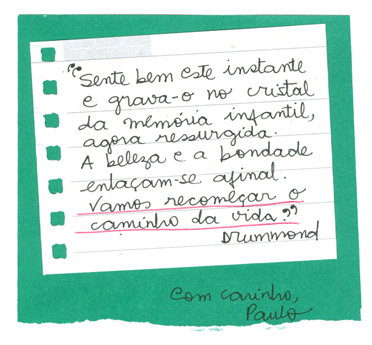 “Sente bem este instante
e grava-o no cristal
da memória infantil,
agora ressurgida.
A beleza e a bondade
enlaçam-se afinal.
Vamos recomeçar o
caminho da vida?”
Drummond
Com carinho,
Paulo